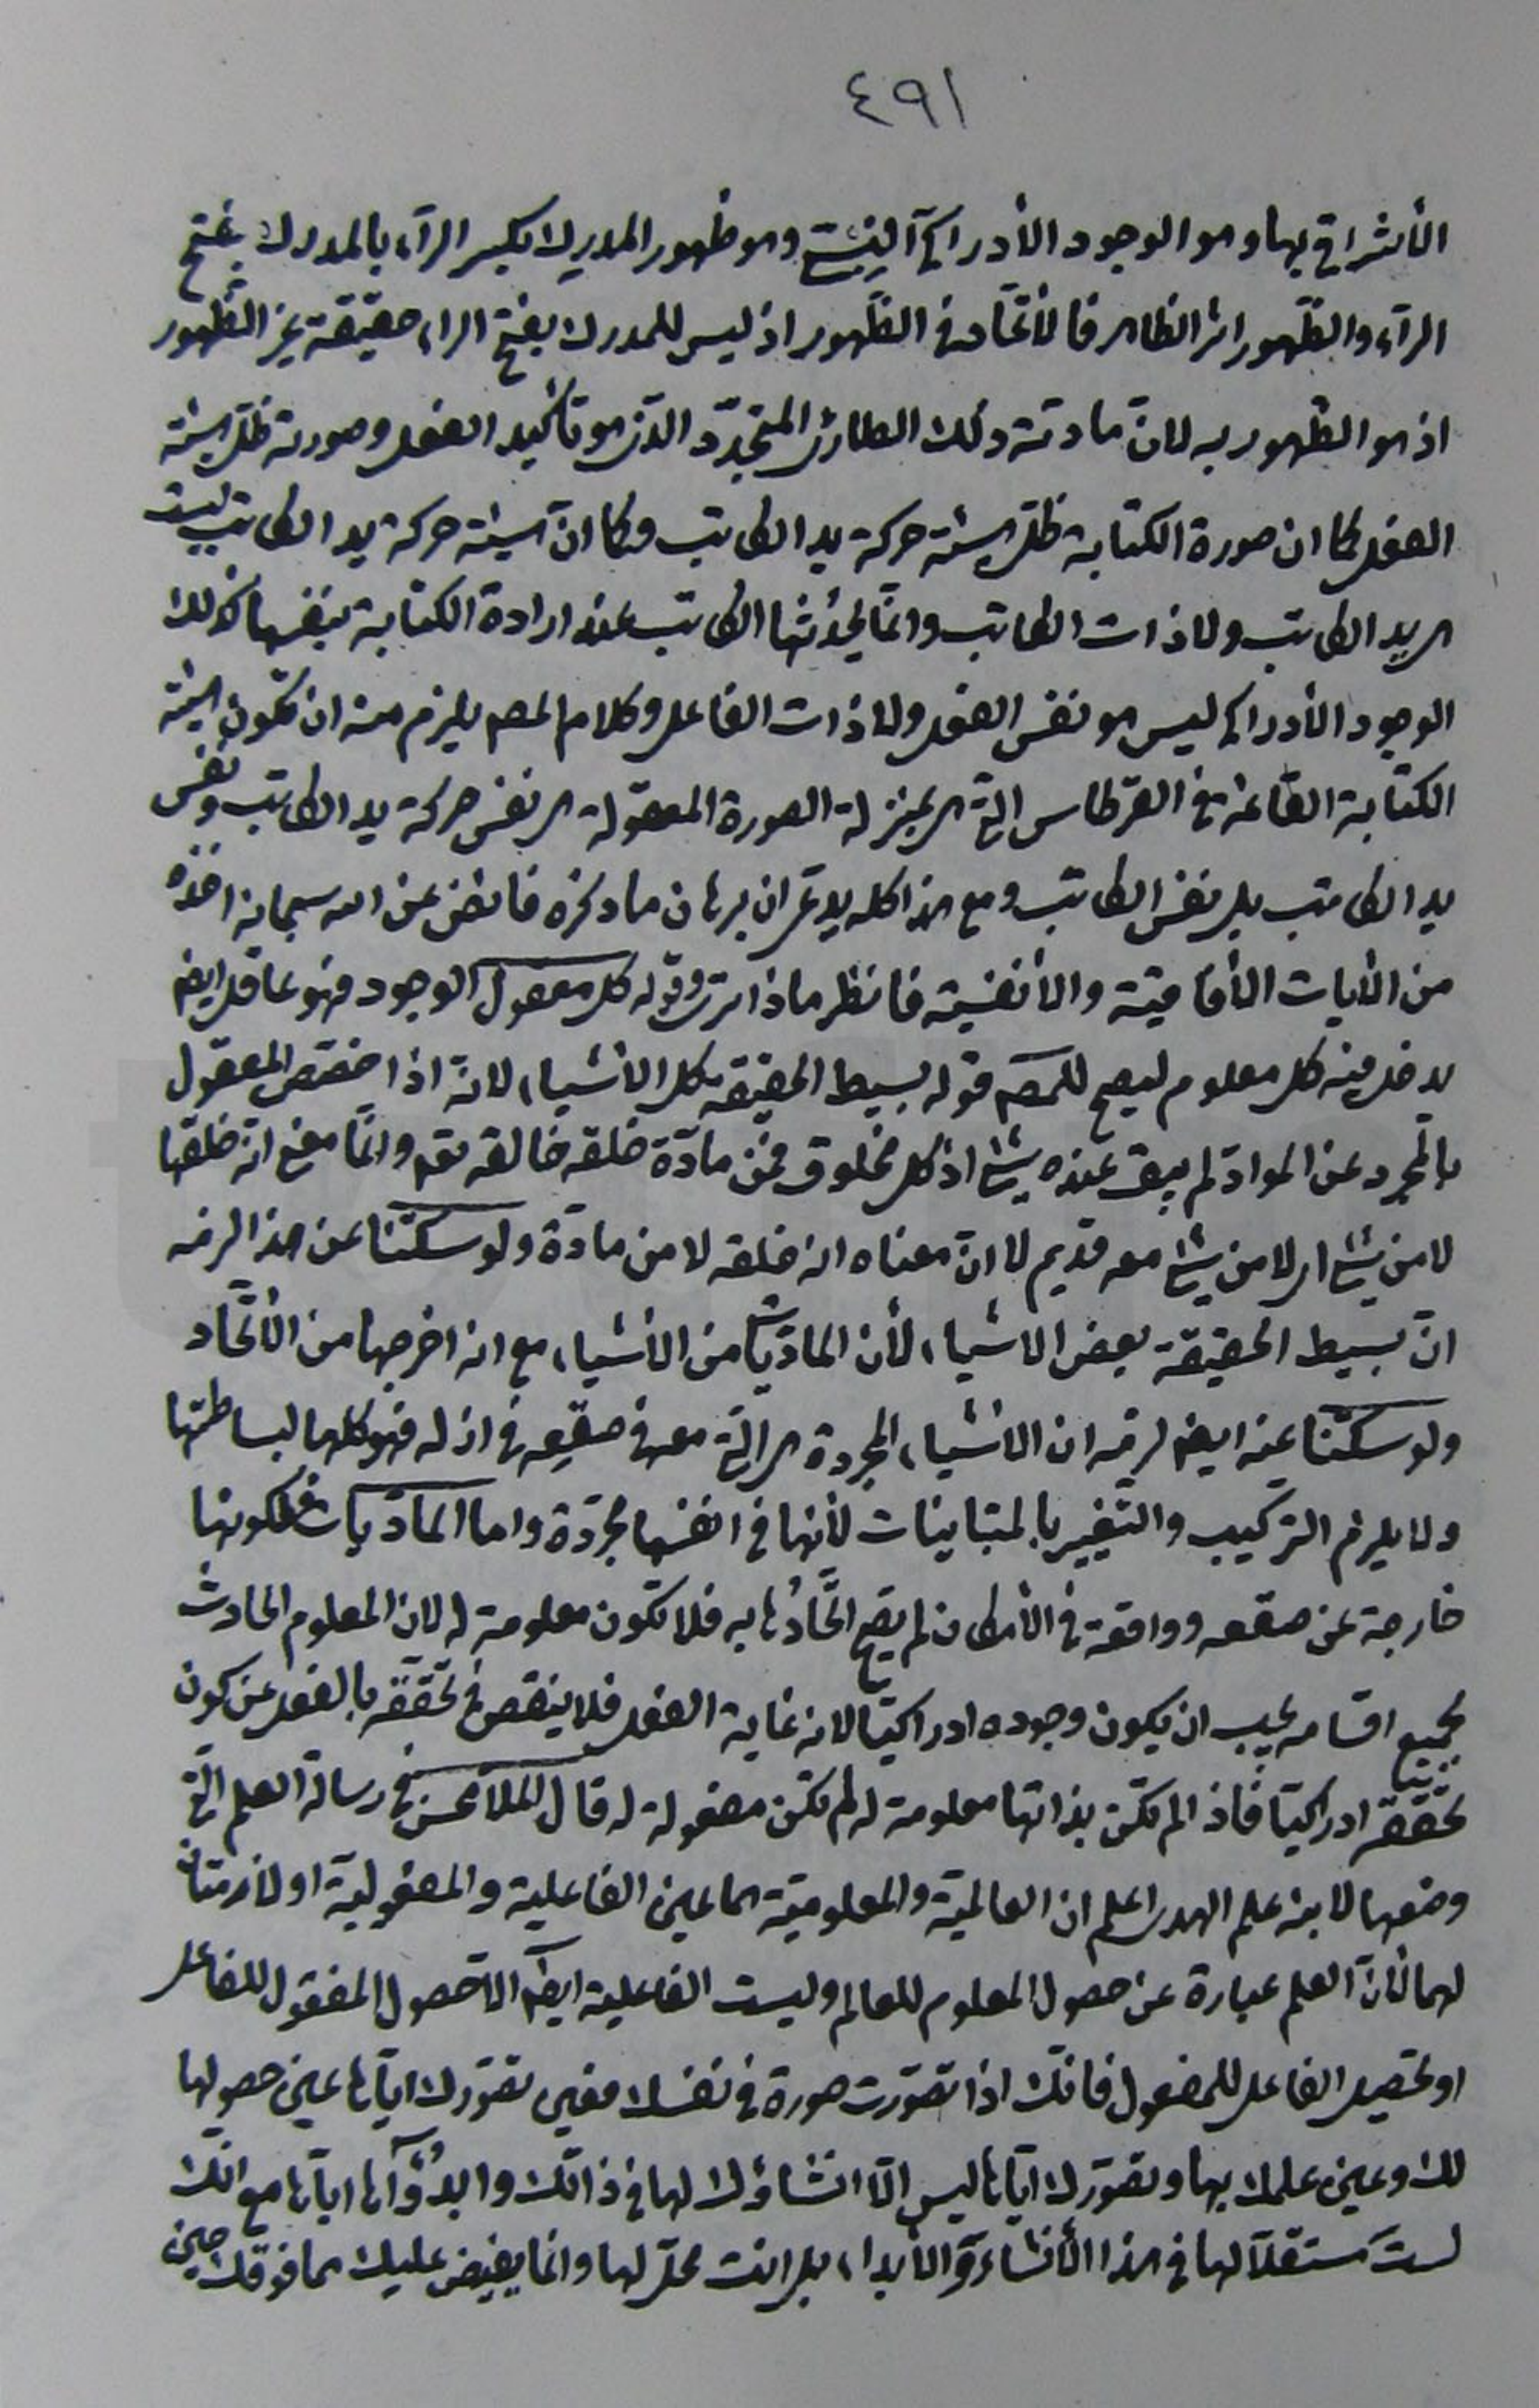 ٤٩١
الأشراقي بها وهو الوجود الأدراكي وهو ظهور المدرِك بكسر الرآء بالمدرك بفتح
الرآء والظّهور اثر الظاهر فالأتّحاد في الظّهور اذ ليس للمدرك بفتح الراء حقيقة غير الظّهور
اذ هو الظّهور به لانّ مادته ذلك الطاريّ المتجدّد الذي هو تأكيد الفعل وصورته ظلّ هيئة
الفعل كما ان صورة الكتابة ظلّ هيئة حركة يد الكاتب وكما انّ هيئة حركة يد الكاتب ليست
هي يد الكاتب ولا ذات الكاتب وانّما يحدثها الكاتب عند ارادة الكتابة بنفسها كذلك
الوجود الأدراكي ليس هو نفس الفعل ولا ذات الفاعل وكلام المصـ يلزم منه ان تكون هيئة
الكتابة القائمة في القرطاس الّتي هي بمنزلة الصورة المعقولة هي نفس حركة يد الكاتب ونفس
يد الكاتب بل نفس الكاتب ومع هذا كله يدّعي ان برهان ما ذكره فائض عن الله سبحانه اخذه
من الأيات الأفاقيّة والأنفسيّة فانظر ماذا ترى وقوله كل معقول الوجود فهو عاقل ايضـ
يدخل فيه كل معلوم ليصح للمصـ قوله بسيط الحقيقة كل الأشياء لانّه اذا اختصّ المعقول
بالمجرد عن الموادّ لم يبق عنده شيئ اذ كل مخلوق فمن مآدّة خلقه خالقه تعـ وانّما معنى انّه خلقها
لا من شيئ اي لا من شيئ معه قديم لا انّ معناه انه خلقه لا من مادّة ولو سكتنا عن هذا لزمه
انّ بسيط الحقيقة بعض الاشياء لأن المادّيات من الأشياء مع انه اخرجها من الأتّحاد
ولو سكتنا عنه ايضـ لزمه ان الأشياء المجردة هي الّتي معه في صقعه في ازله فهو كلها لبساطتها
ولا يلزم التركيب والتّغيير بالمتباينات لأنها في انفسها مجرّدة واما المادّيات فلكونها
خارجة عن صقعه وواقعة في الأمكان لم يصح اتّحادُها به فلا تكون معلومة له لان المعلوم الحادث
بجميع اقسامه يجب ان يكون وجوده ادراكيّا لانه غاية الفعل فلا ينقص في تحققه بالفعل عن كون
تحققه ادراكيّا فاذا لم تكن بذاتها معلومة له لم تكن مفعولة له قال الملّا محسن في رسالة العلم الّتي
وضعها لابنه علم الهدى اعلم ان العالميّة والمعلوميّة هما عين الفاعلية والمفعوليّة او لازمتان
لهما لأنّ العلم عبارة عن حصول المعلوم للعالم وليست الفاعلية ايضـ الّا حصول المفعول للفاعل
او تحصيل الفاعل للمفعول فانّك اذا تصوّرت صورة في نفسك فعين تصوّرك ايّاها عين حصولها
لك وعين علمك بها وتصوّرك ايّاها ليس الّا انشاؤك لها في ذاتك وابدُؤك ايّاها مع انّك
لست مستقلّا لها في هذا الأنشاء والأبداء بل انت محلّ لها وانما يفيض عليك مما فوقك حين